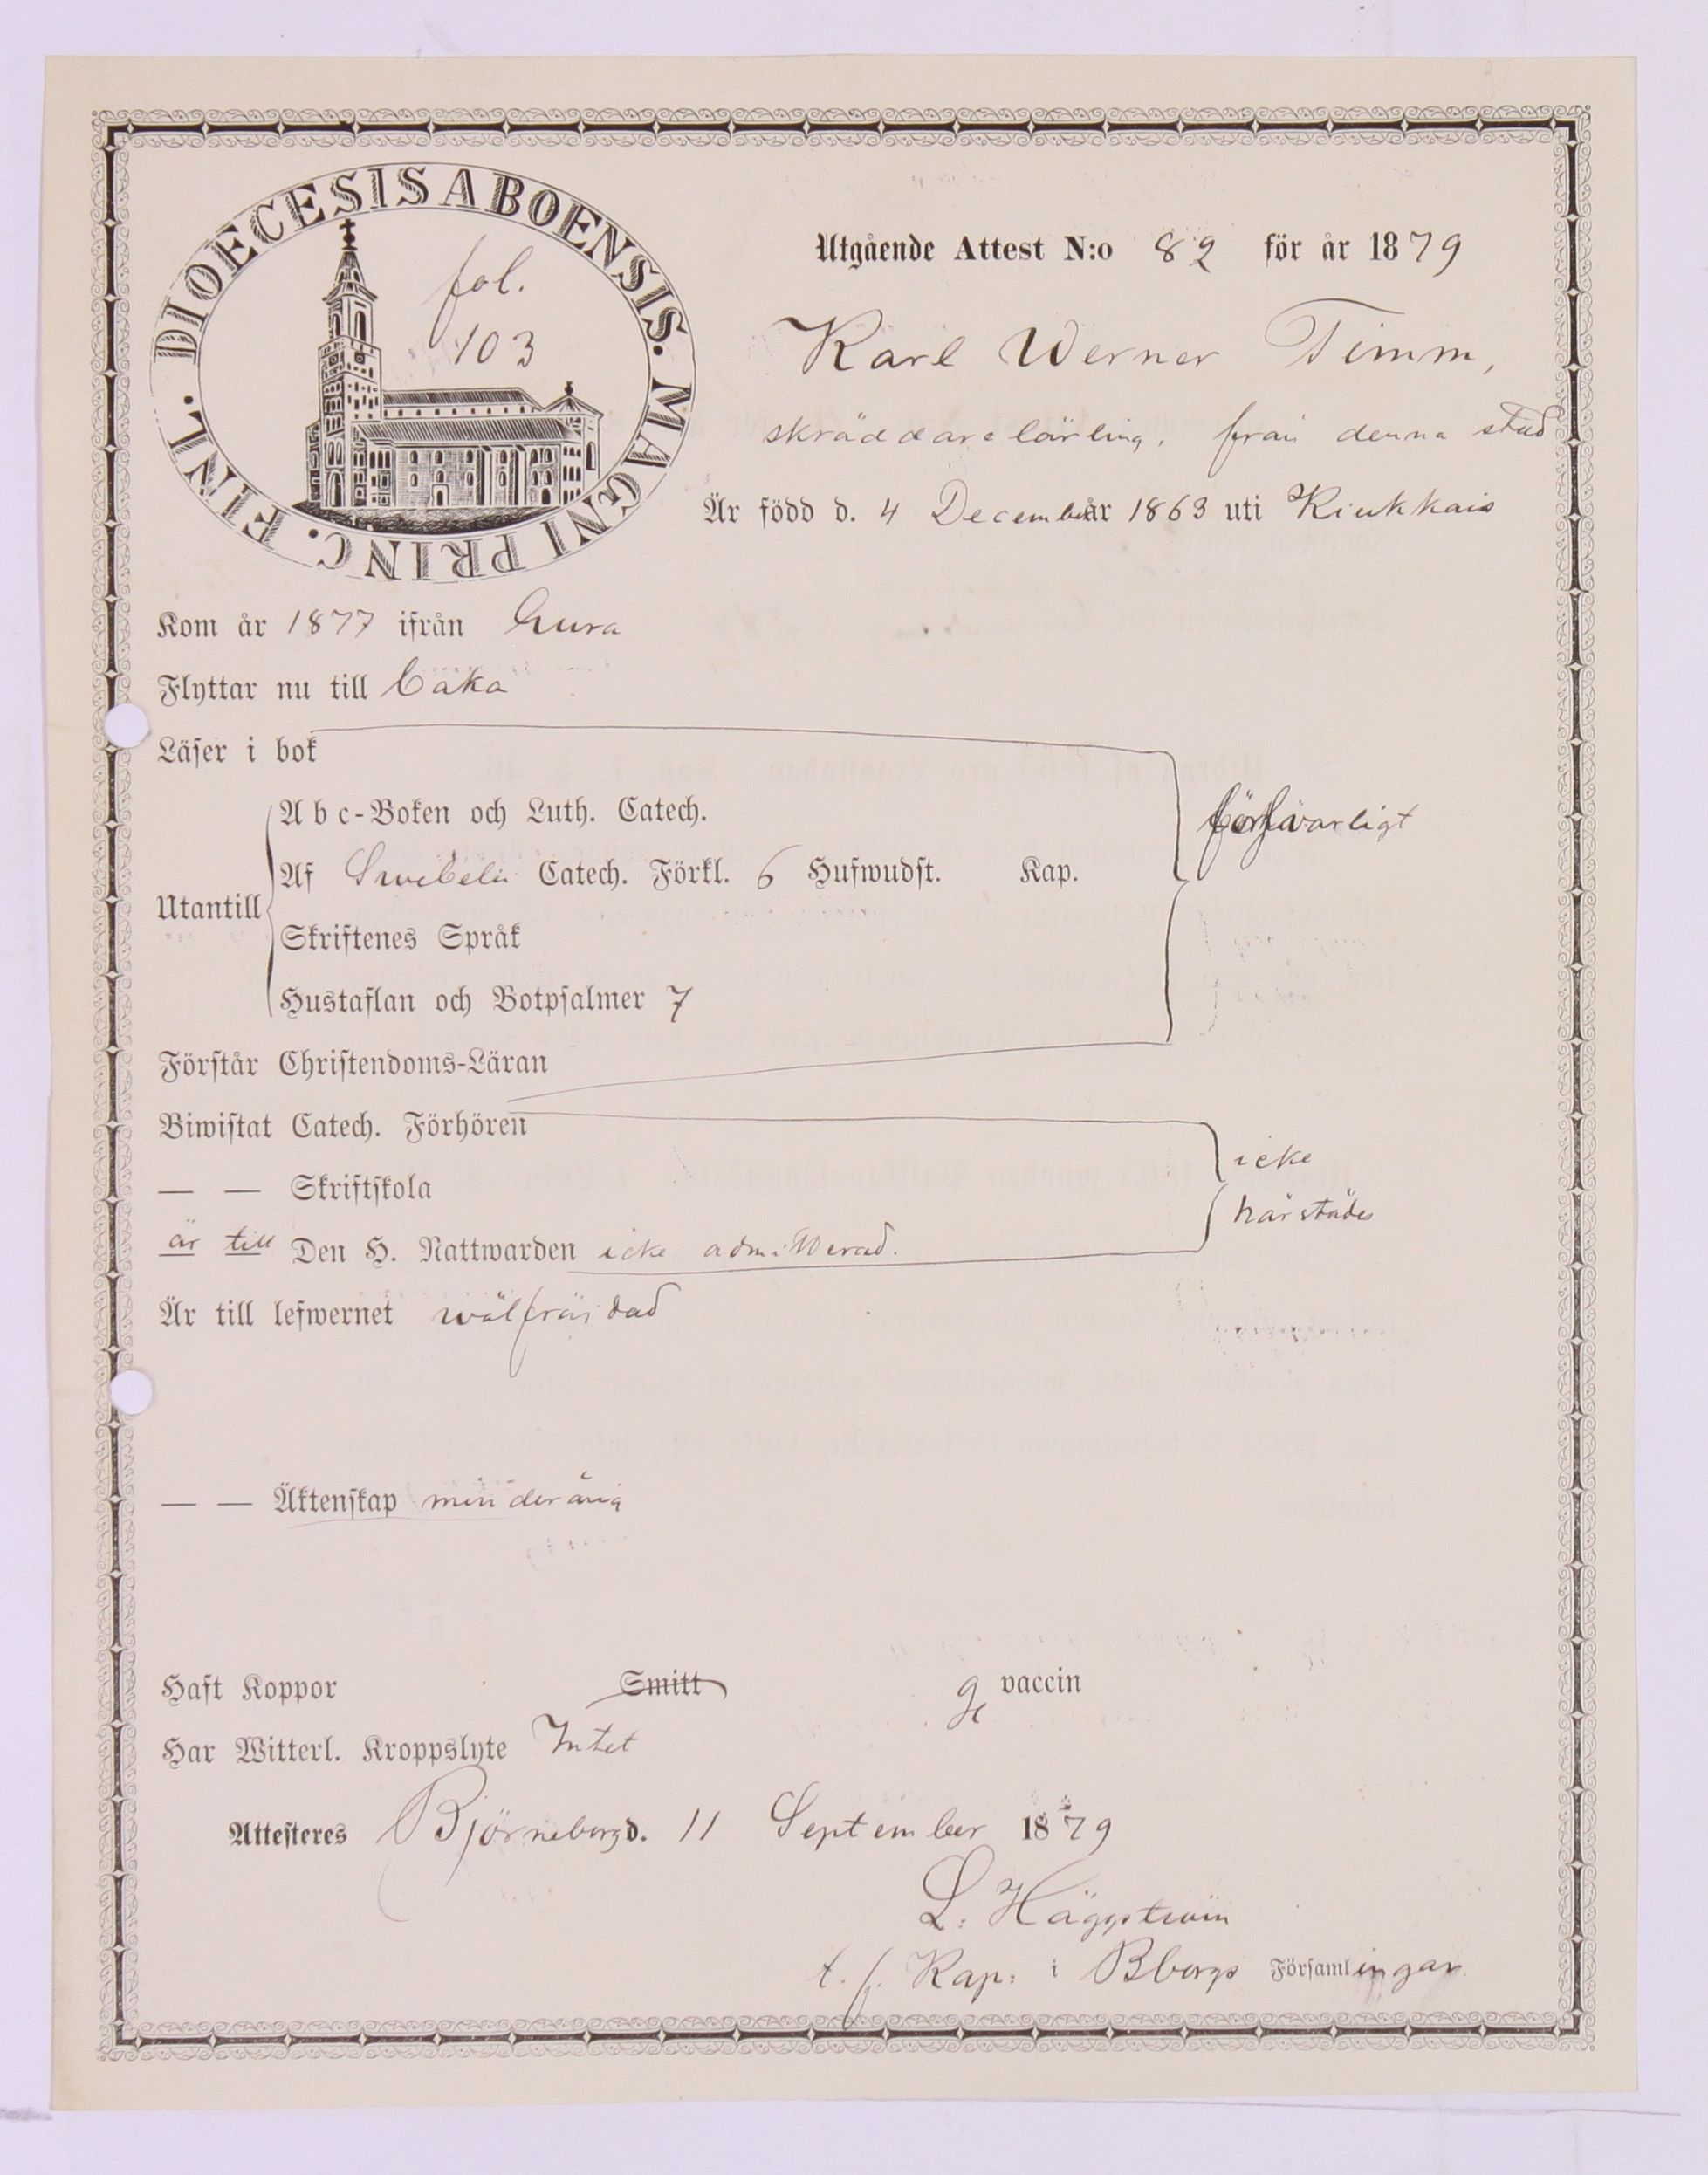 DIOECESIS ABOENSIS. MAGNI PRINC. FINL.
fol.
103
Utgående Attest N:o 82 för år 1879
Karl Werner Timm,
skräddarelärling, från denna stad
Är född d. 4 December år 1863 uti Kiukkais
Kom år 1877 ifrån Eura
Flyttar nu till
Läser i bok
Abc-Boken och Luth. Catech.
försvarligt
Af Swebelii Catech. Förkl. 6 Hufwudst. Kap.
Utantill
Skriftenes Språk
Hustaflan och Botpsalmer 7
Förstår Christendoms-Läran
Biwistat Catech. Förhören
icke
— — Skriftskola
härstädes
är till Den H. Nattwarden icke admitterad.
Är till lefwernet wälfräjdad
— — Äktenskap minderårig
Haft Koppor Smitt vaccin
Har Witterl. Kroppslyte Intet
Attesteres Björneborg d. 11 September 1879
L. Häggström
t. f. Kap: i Bborgs Församlingar.